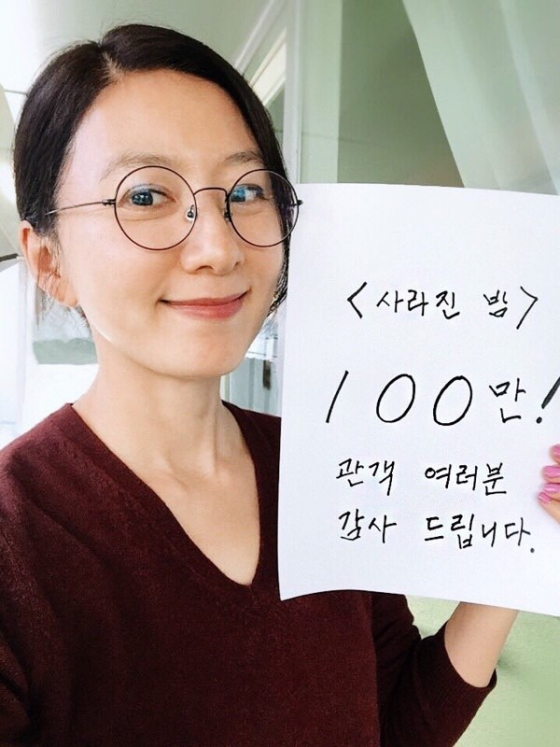 <사라진 밤>
100만!
관객 여러분
감사 드립니다.